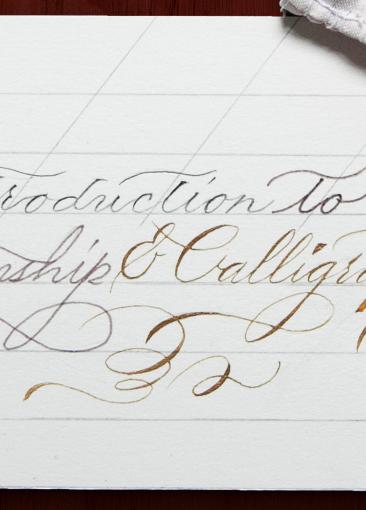 roduction to
nship & Calligra